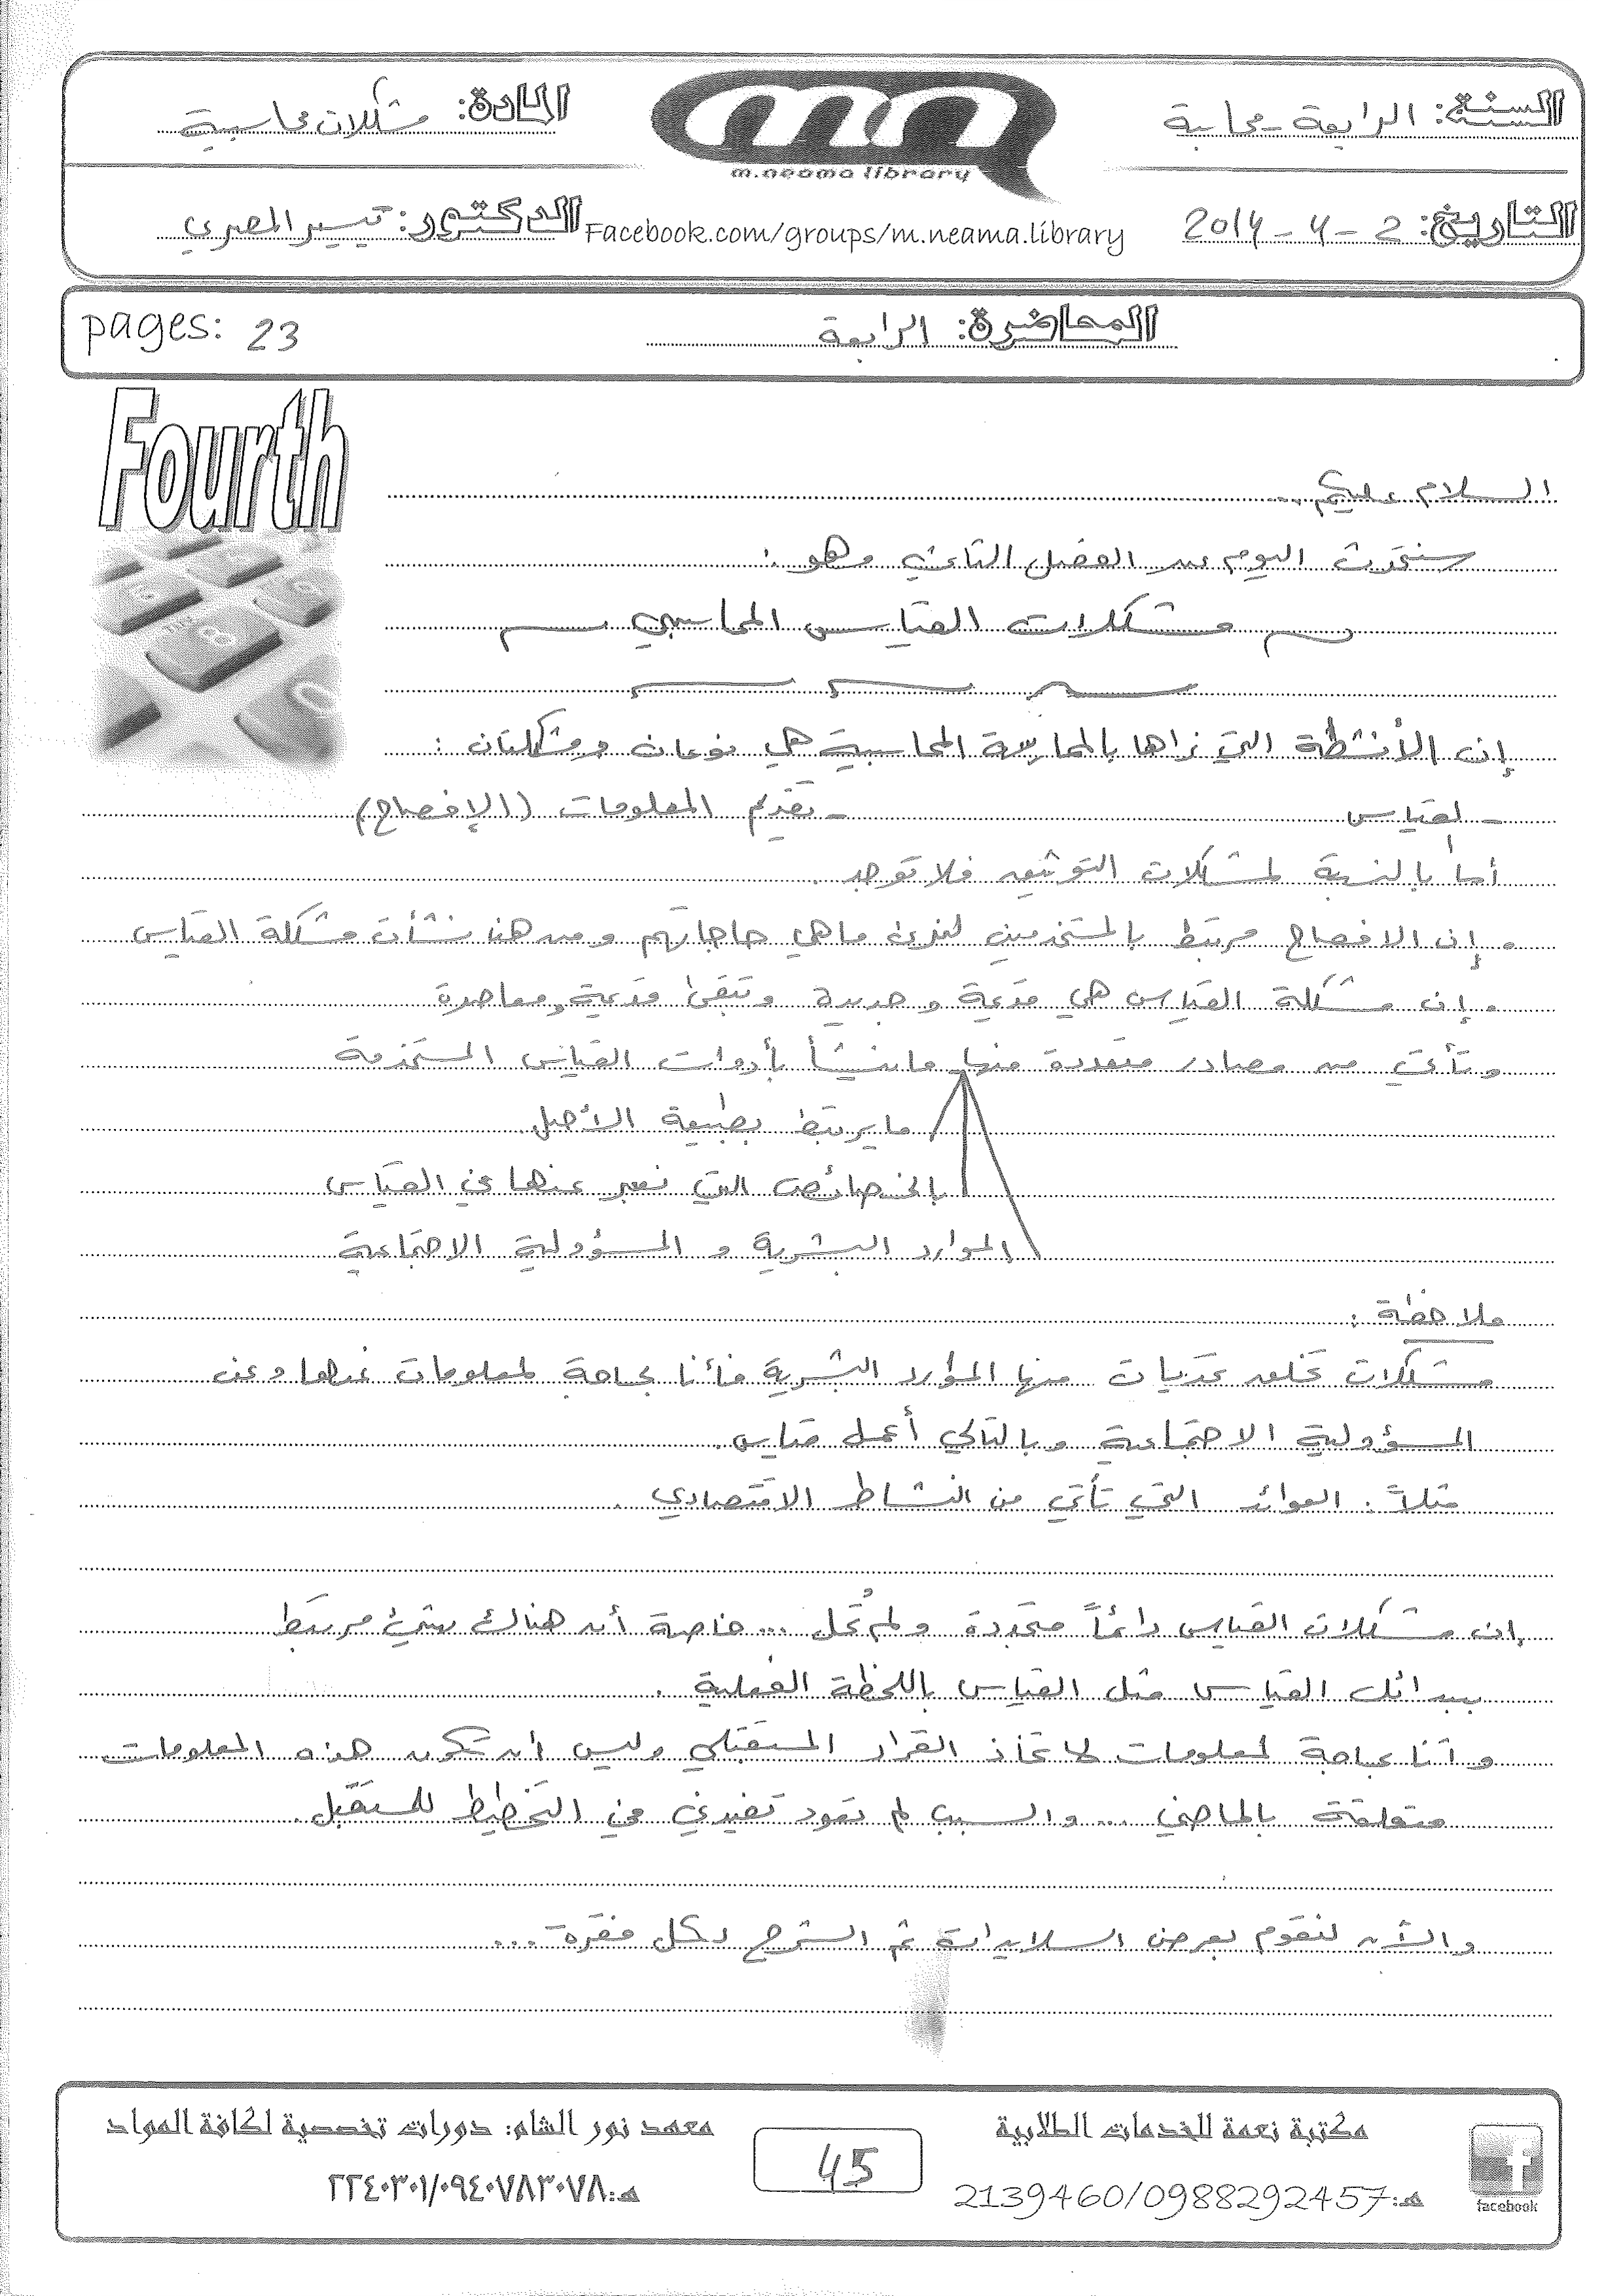 السنة: الرابعة - محاسبة
المادة: مشكلات محاسبية
m.neama library
التاريخ: 2 - 4 - 2014
Facebook.com/groups/m.neama.library
الدكتور: تيسير المصري
المحاضرة: الرابعة
pages: 23
Fourth
السلام عليكم..
سنتحدث اليوم عن الفصل الثاني وهو:
مشكلات القياس المحاسبي
إن الأنشطة التي نراها بالممارسة المحاسبية هي نوعان ومشكلتان:
- لقياس - تقديم المعلومات (الإفصاح)
أما بالنسبة لمشكلات التوثيق فلا توجد.
. إن الافصاح مرتبط بالمستخدمين لنرى ماهي حاجاتهم ومن هنا نشأت مشكلة القياس
. إن مشكلة القياس هي قديمة وجديدة وتبقى قديمة ومعاصرة
وتأتي من مصادر متعددة منها ما ينشأ بأدوات القياس المستخدمة
ما يرتبط بطبيعة الأصل
بالخصائص التي نعبر عنها في القياس
الموارد البشرية و المسؤولية الاجتماعية
ملاحظة:
مشكلات تخلق تحديات منها الموارد البشرية فأنا بحاجة لمعلومات عنها وعن
المسؤولية الاجتماعية وبالتالي أعمل قياس.
مثلاً: العوائد التي تأتي من النشاط الاقتصادي.
إن مشكلات القياس دائماً متجددة ولم تُحل ... خاصة أن هناك شيء مرتبط
ببدائل القياس مثل القياس باللحظة الفعلية.
وأنا بحاجة لمعلومات لاتخاذ القرار المستقبلي وليس أن تكون هذه المعلومات
متعلقة بالماضي ... والسبب لم تعود تفيدني في التخطيط للمستقبل.
والآن لنقوم بعرض السلايدات ثم الشرح لكل فقرة...
مكتبة نعمة للخدمات الطلابية
هـ: 2139460/0988292457
facebook
45
معهد نور الشام: دورات تخصصية لكافة المواد
هـ: ٢٢٤٠٣٠١/٠٩٤٠٧٨٣٠٧٨